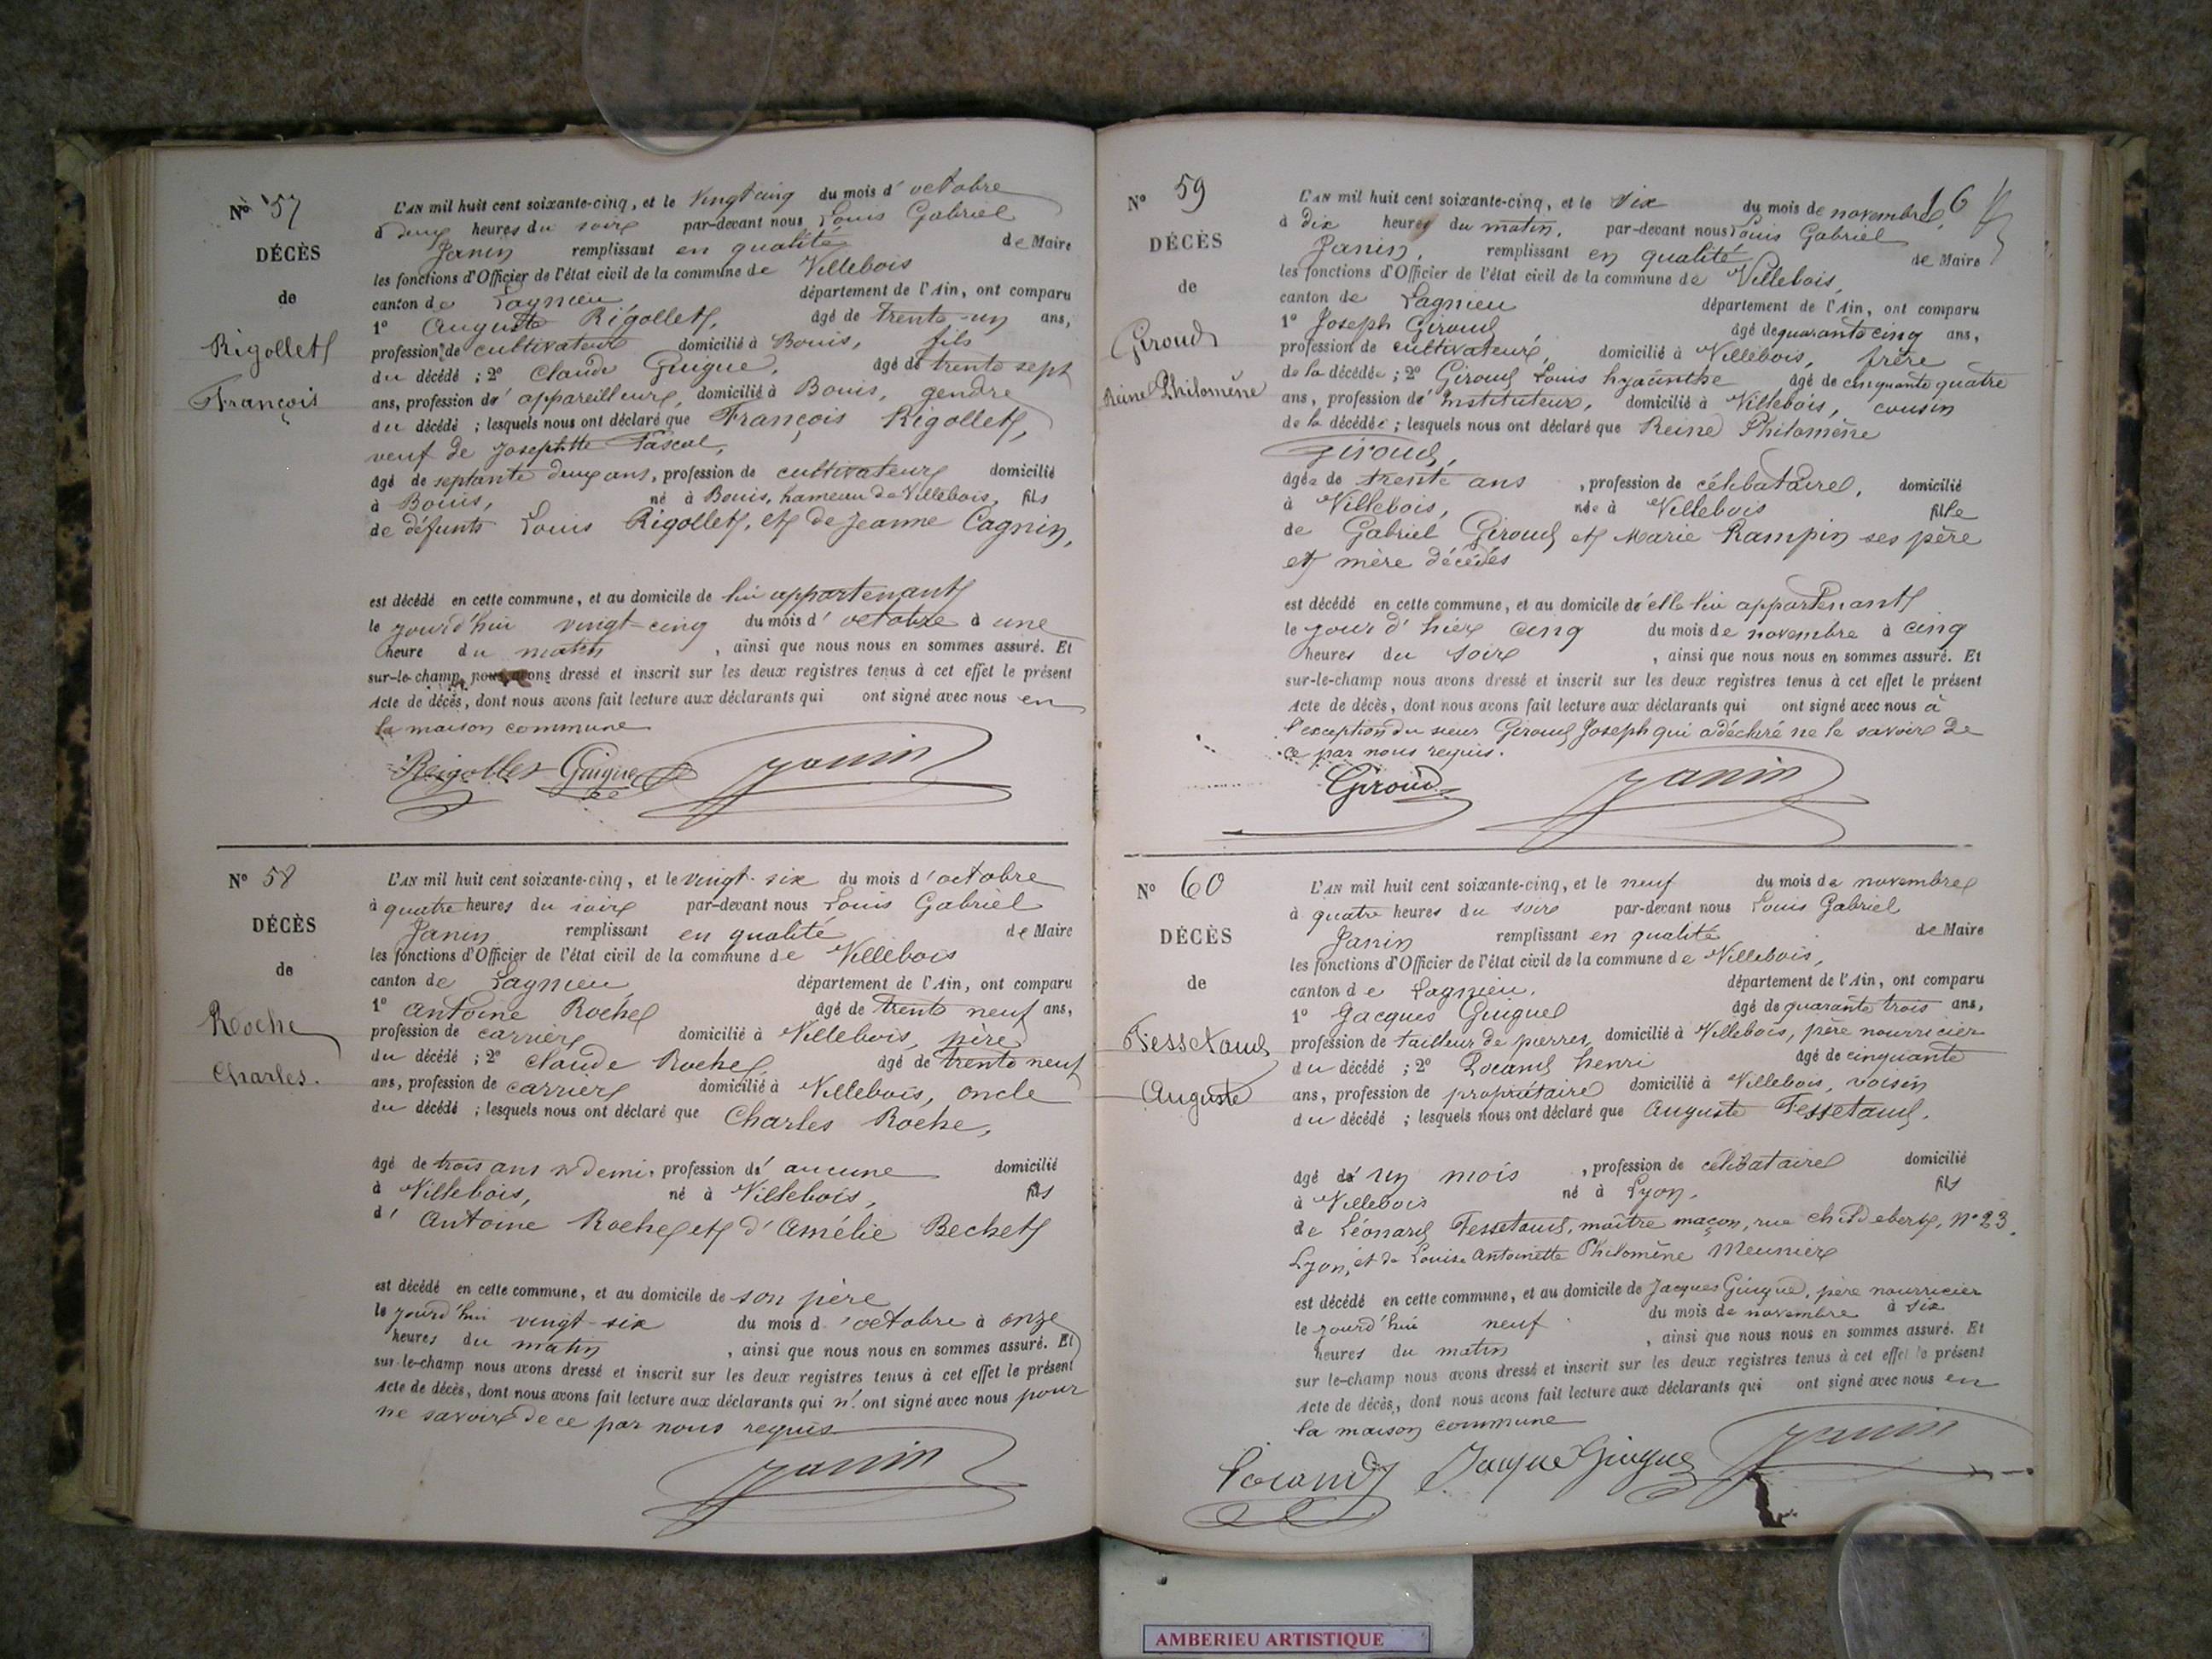 N° 57
DÉCÈS
de
Rigollet
François
L'AN mil huit cent soixante-cinq, et le vingt cinq du mois d'octobre
à deux heures du soir par-devant nous Louis Gabriel
Janin remplissant en qualité de Maire
les fonctions d'Officier de l'état civil de la commune de Villebois
canton de Lagnieu département de l'Ain, ont comparu
1° Auguste Rigollet, âgé de trente-un ans,
profession de cultivateur domicilié à Bouis, fils
du décédé ; 2° Claude Guigue, âgé de trente sept
ans, profession d'appareilleur, domicilié à Bouis, gendre
du décédé ; lesquels nous ont déclaré que François Rigollet,
veuf de Josephtte Pascal,
âgé de septante deux ans, profession de cultivateur domicilié
à Bouis, né à Bouis, hameau de Villebois, fils
de défunts Louis Rigollet, et de Jeanne Cagnin,
est décédé en cette commune, et au domicile de lui appartenant
le jourd'hui vingt-cinq du mois d'octobre à une
heure du matin, ainsi que nous nous en sommes assuré. Et
sur-le-champ nous avons dressé et inscrit sur les deux registres tenus à cet effet le présent
Acte de décès, dont nous avons fait lecture aux déclarants qui ont signé avec nous en
la maison commune
Reigollet Guigue Janin
N° 58
DÉCÈS
de
Roche
Charles.
L'AN mil huit cent soixante-cinq, et le vingt-six du mois d'octobre
à quatre heures du soir par-devant nous Louis Gabriel
Janin remplissant en qualité de Maire
les fonctions d'Officier de l'état civil de la commune de Villebois
canton de Lagnieu département de l'Ain, ont comparu
1° Antoine Roche âgé de trente neuf ans,
profession de carrier domicilié à Villebois, père
du décédé ; 2° Claude Roche, âgé de trente neuf
ans, profession de carrier domicilié à Villebois, oncle
du décédé ; lesquels nous ont déclaré que Charles Roche,
âgé de trois ans & demi, profession d'aucune domicilié
à Villebois, né à Villebois, fils
d'Antoine Roche et d'Amélie Bechet
est décédé en cette commune, et au domicile de son père
le jourd'hui vingt-six du mois d'octobre à onze
heures du matin, ainsi que nous nous en sommes assuré. Et
sur-le-champ nous avons dressé et inscrit sur les deux registres tenus à cet effet le présent
Acte de décès, dont nous avons fait lecture aux déclarants qui n'ont signé avec nous pour
ne savoir de ce par nous requis
Janin
N° 59
DÉCÈS
de
Giroud
Reine Philomène
16
L'AN mil huit cent soixante-cinq, et le six du mois de novembre,
à dix heures du matin, par-devant nous Louis Gabriel
Janin, remplissant en qualité de Maire
les fonctions d'Officier de l'état civil de la commune de Villebois,
canton de Lagnieu département de l'Ain, ont comparu
1° Joseph Giroud, âgé de quarante cinq ans,
profession de cultivateur, domicilié à Villebois, frère
de la décédée ; 2° Giroud Louis hyacinthe âgé de cinquante quatre
ans, profession d'instituteur, domicilié à Villebois, cousin
de la décédée ; lesquels nous ont déclaré que Reine Philomène
Giroud,
âgée de trente ans, profession de célibataire, domicilié
à Villebois, née à Villebois fille
de Gabriel Giroud et Marie Rampin ses père
et mère décédés
est décédé en cette commune, et au domicile d'elle lui appartenant
le jour d'hier cinq du mois de novembre à cinq
heures du soir, ainsi que nous nous en sommes assuré. Et
sur-le-champ nous avons dressé et inscrit sur les deux registres tenus à cet effet le présent
Acte de décès, dont nous avons fait lecture aux déclarants qui ont signé avec nous à
l'exception du sieur Giroud Joseph qui a déclaré ne le savoir de
ce par nous requis.
Giroud Janin
N° 60
DÉCÈS
de
Tessetaud
Auguste
L'AN mil huit cent soixante-cinq, et le neuf du mois de novembre
à quatre heures du soir par-devant nous Louis Gabriel
Janin remplissant en qualité de Maire
les fonctions d'Officier de l'état civil de la commune de Villebois,
canton de Lagnieu, département de l'Ain, ont comparu
1° Jacques Guigue âgé de quarante trois ans,
profession de tailleur de pierres, domicilié à Villebois, père nourricier
du décédé ; 2° Locand henri âgé de cinquante
ans, profession de propriétaire domicilié à Villebois, voisin
du décédé ; lesquels nous ont déclaré que Auguste Tessetaud,
âgé d'un mois, profession de célibataire domicilié
à Villebois né à Lyon, fils
de Léonard Tessetaud, maître maçon, rue childebert, n° 23,
Lyon, et de Louise Antoinette Philomène Meunier
est décédé en cette commune, et au domicile de Jacques Guigue, père nourricier
le jourd'hui neuf du mois de novembre à six
heures du matin, ainsi que nous nous en sommes assuré. Et
sur le-champ nous avons dressé et inscrit sur les deux registres tenus à cet effet le présent
Acte de décès, dont nous avons fait lecture aux déclarants qui ont signé avec nous en
la maison commune
Locand Jacque Guigue Janin
AMBERIEU ARTISTIQUE